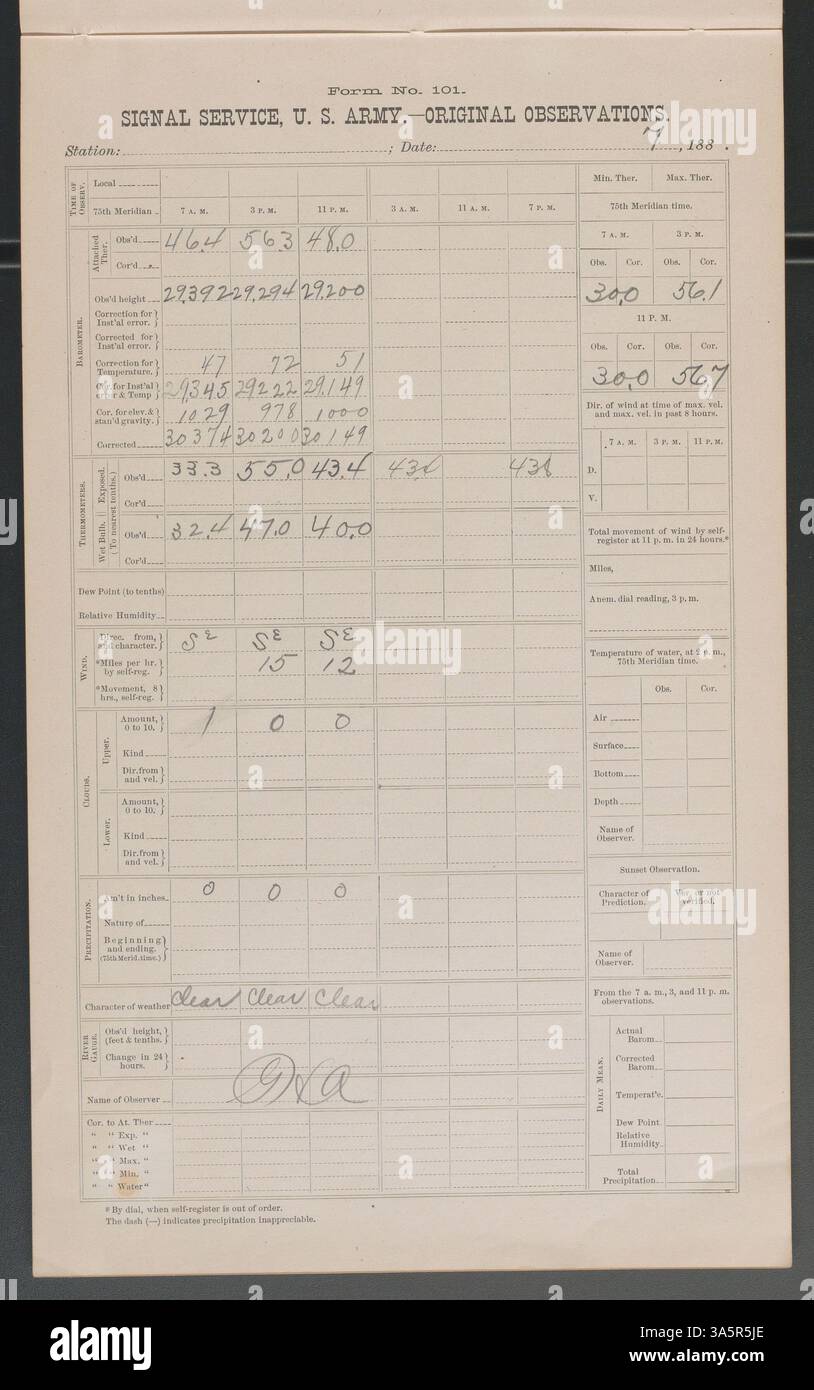 Form No. 101.
SIGNAL SERVICE, U. S. ARMY.—ORIGINAL OBSERVATIONS.
Station: ; Date: 7, 188 .
TIME OF OBSERV.
Local
75th Meridian 7 A. M. 3 P. M. 11 P. M. 3 A. M. 11 A. M. 7 P. M.
BAROMETER.
Attached Ther.
Obs'd 46.4 56.3 48.0
Cor'd
Obs'd height 29.392 29.294 29.200
Correction for Inst'al error.
Corrected for Inst'al error.
Correction for Temperature. 47 72 51
Cor. for Inst'al error & Temp 29.345 29222 29.149
Cor. for elev. & stan'd gravity. 1029 978 1000
Corrected 30374 30200 30149
THERMOMETERS.
Exposed.
Wet Bulb.
(To nearest tenths.)
Obs'd 33.3 55.0 43.4
Cor'd
Obs'd 32.4 47.0 40.0
Cor'd
Dew Point (to tenths)
Relative Humidity
WIND.
Direc. from, and character. SE SE SE
*Miles per hr. by self-reg. 15 12
*Movement, 8 hrs., self-reg.
CLOUDS.
Upper.
Amount, 0 to 10. 1 0 0
Kind
Dir. from and vel.
Lower.
Amount, 0 to 10.
Kind
Dir. from and vel.
PRECIPITATION.
Am't in inches 0 0 0
Nature of
Beginning and ending. (75th Merid. time.)
Character of weather Clear Clear Clear
RIVER GAUGE.
Obs'd height, (feet & tenths.)
Change in 24 hours.
Name of Observer
Cor. to At. Ther
" " Exp. "
" " Wet "
" " Max. "
" " Min. "
" " Water "
* By dial, when self-register is out of order.
The dash (—) indicates precipitation inappreciable.
Min. Ther. Max. Ther.
75th Meridian time.
7 A. M. 3 P. M.
Obs. Cor. Obs. Cor.
30.0 56.1
11 P. M.
Obs. Cor. Obs. Cor.
30.0 56.7
Dir. of wind at time of max. vel. and max. vel. in past 8 hours.
7 A. M. 3 P. M. 11 P. M.
D.
V.
Total movement of wind by self-register at 11 p. m. in 24 hours.*
Miles,
Anem. dial reading, 3 p. m.
Temperature of water, at 2 p. m., 75th Meridian time.
Obs. Cor.
Air
Surface
Bottom
Depth
Name of Observer.
Sunset Observation.
Character of Prediction. Ver. or not verified.
Name of Observer.
From the 7 a. m., 3, and 11 p. m. observations.
DAILY MEAN.
Actual Barom.
Corrected Barom.
Temperat'e.
Dew Point
Relative Humidity
Total Precipitation
alamy
Image ID: 3A5R5JE
www.alamy.com